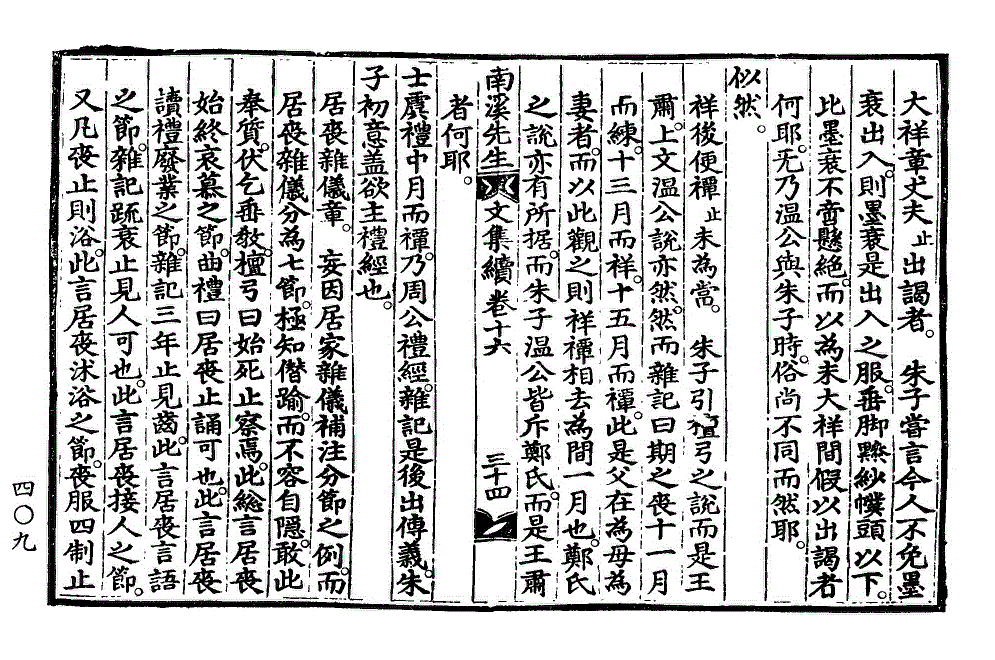 大祥章丈夫止出謁者。　朱子嘗言今人不免墨
衰出入。則墨衰是出入之服。垂脚黲紗幞頭以下。
比墨衰不啻懸絶。而以為未大祥間假以出謁者
何耶。无乃温公與朱子時。俗尚不同而然耶。
似然。
祥後便禫止未為當。　朱子引檀弓之說而是王
肅。上文温公說亦然。然而雜記曰期之喪十一月
而練。十三月而祥。十五月而禫。此是父在為母為
妻者。而以此觀之則祥禫相去為間一月也。鄭氏
之說亦有所据。而朱子温公皆斥鄭氏。而是王肅
者何耶。
南溪先生文集續卷十六
三十四
士虞禮中月而禫。乃周公禮經。雜記是後出傳義。朱
子初意盖欲主禮經也。
居喪雜儀章。　妄因居家雜儀補注分節之例。而
居喪雜儀分為七節。極知僭踰。而不容自隱。敢此
奉質。伏乞垂教。檀弓曰始死止察焉。此総言居喪
始終哀慕之節。曲禮曰居喪止誦可也。此言居喪
讀禮廢業之節。雜記三年止見齒。此言居喪言語
之節。雜記疏衰止見人可也。此言居喪接人之節。
又凡喪止則浴。此言居喪沐浴之節。喪服四制止
四〇九